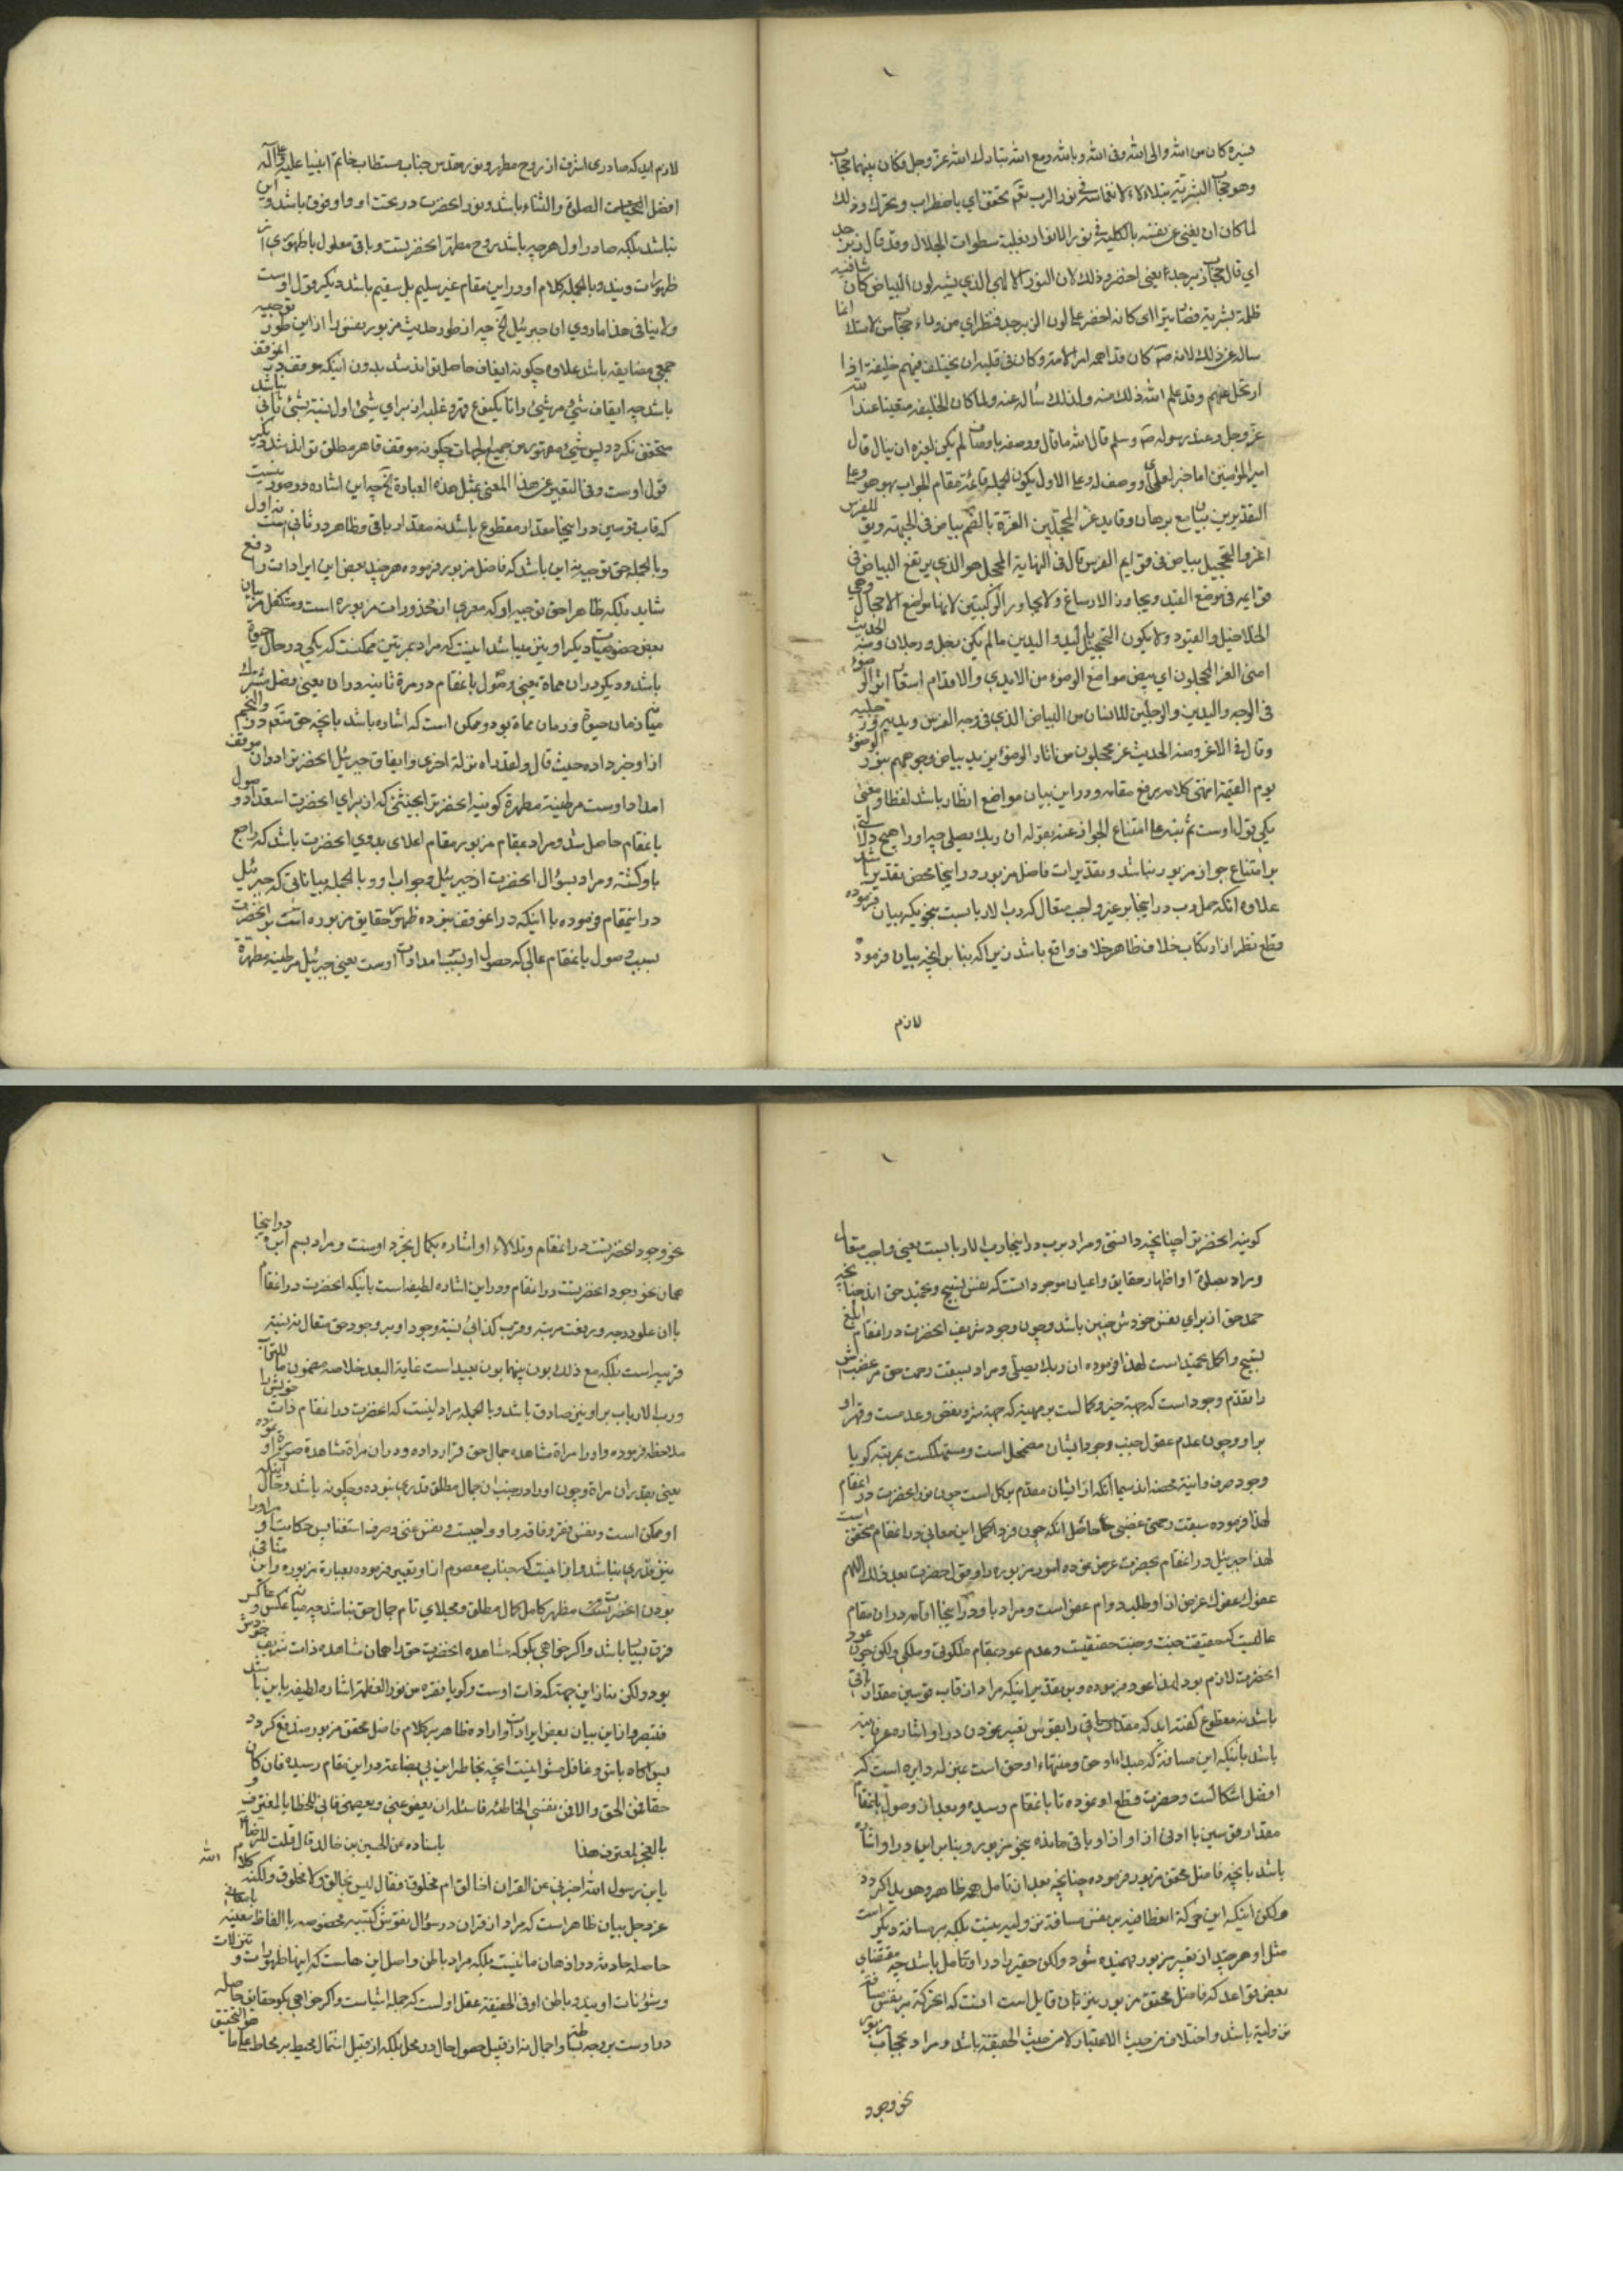 فسيره كان من الله والى الله وفى الله وبالله ومع الله تبارك الله عز وجل فكان بينهما حجاب
وهو حجاب البشرية يتلألأ لانغماسه في نور الرب تعم تحقق اي باضطراب وتحرك وذلك
لما كان ان يفنى عن نفسه بالكلية في نور الانوار بغلبة سطوات الجلال وقد قال زبرجد
اي قال حجاب زبرجد يعنى اخضر وذلك لان النور الالهى الذي يشبه لون البياض كان شابته
ظلمة بشرية فصار يتراءى كانه اخضر على لون الزبرجد فنظر اي من وراء حجاب من لامتك انما
ساله عن ذلك لانه ص كان قد اهمه امر الامة وكان فى قلبه ان يختلف فيهم خليفة اذا
ارتحل عنهم وقد علم الله ذلك منه ولذلك سأله عنه ولما كان الخليفة متعينا عند الله
عز وجل وعند رسوله ص وسلم قال الله ما قال ووصفه باوصاف لم يكن لغيره ان ينال قال
امير المؤمنين اما خبر لعلى او وصف له وعلى الاول يكون الجملة قائمة مقام الجواب بهو هو وعلى
التقديرين بيان مع برهان وقايد غر المحجلين الغرة بالضم بياض فى الجبهة وبق للفرس
اغر والتحجيل بياض فى قوايم الفرس قال فى النهاية المحجل هو الذي يرتفع البياض فى
قوايمه فى موضع القيد ويجاوز الارساغ ولا يجاوز الركبتين لانها مواضع الاحجال وهي
الخلاخيل والقيود ولا يكون التحجيل باليد واليدين ما لم يكن رجل ورجلان ومنه الحديث
امتى الغر المحجلون اى بيض مواضع الوضوء من الايدي والاقدام استعار اثر الوضوء
فى الوجه واليدين والرجلين للانسان من البياض الذي فى وجه الفرس ويديه ورجليه
وقال فى الاغر ومنه الحديث غر محجلون من اثار الوضوء يريد بياض وجوههم بنور الوضوء
يوم القيمة انتهى كلامه رفع مقامه ودر اين بيان مواضع انظار باشد لفظا و معنى
يكى قول اوست ثم نبه على امتناع الجواز عنه بقوله ان ربك يصلى چه او را هيچ دلالتى
بر امتناع جواز مزبور نباشد و تقديرات فاضل مزبور در اينجا محض تقدير باشد
علاوه آنكه حمل رب در اينجا بر غير واجب متعال كه رب الارباب است بنحويكه بيان فرموده
قطع نظر از ارتكاب خلاف ظاهر خلاف واقع باشد زيرا كه بنا بر انچه بيان فرموده
لازم
لازم ايد كه صادرى اشرف از روح مطهر و نور مقدس جناب مستطاب خاتم انبيا عليه و على آله
افضل التحيات الصلوة والثناء باشد و نور انحضرت در تحت او و او فوق باشد و اين
نباشد بلكه صادر اول هر چه باشد روح مطهر انحضرتست و باقى معلول يا ظهورى از
ظهورات ويند و بالجمله كلام او در اين مقام غير سليم بل سقيم باشد ديگر قول اوست
ولا ينافى هذا ما روي ان جبرئيل الخ چه از طور حديث مزبور نفس را از اين طور توجيه
جمعى مضايقه باشد علاوه چگونه ايقاف حاصل تواند شد بدون اينكه موقف رب الموقف
باشد چه ايقاف شىء مر شىء را تا يكنوع قهر و غلبه از براي شىء اول نسبة بشىء ثانى نباشد
متحقق نگردد پس شىء مقهور من جميع الجهات چگونه موقف قاهر مطلق تواند شد ديگر
قول اوست وفى التعبير عن هذا المعنى بمثل هذه العبارة الخ چه اين اشاره در صورتيست
كه قاب قوسين در اينجا مقدار مقطوع باشد نه مقدار باقى و ظاهر در ثانى است نه اول
و بالجمله حق توجيه اين باشد كه فاضل مزبور فرموده هر چند بعض اين ايرادات را دفع
شايد بلكه ظاهرا حق توجيه او كه معرى از محذورات مزبوره است و متكفل مر بيان
بعض خصوصيات ديگر او نيز ميباشد اينست كه مراد بمرتين ممكنست كه يكى در حال حيوة
باشد و ديگرى در ان مماة يعنى وصول بانمقام در مرة ثانيه در ان يعنى فصل مشترك
ميان زمان حيوة و زمان مماة بود و ممكن است كه اشاره باشد بانچه حق متعم در و النجم
از او خبر داده حيث قال ولقد راه نزلة اخرى و ايقاف جبرئيل انحضرت را در ان موقف
امداد اوست مر طينة مطهرة كونيه انحضرت را بحيثى كه از براي انحضرت استعداد وصول
بانمقام حاصل شد و مراد بمقام مزبور مقام اعلاى بدوي انحضرت باشد كه راجع
باو گشته و مراد بسؤال انحضرت از جبرئيل و جواب او و بالجمله بياناتى كه جبرئيل
در انمقام فرموده با اينكه در انموقف نبوده ظهور حقايق مزبوره است بر انحضرت
بسبب وصول بانمقام عالى كه حصول او بسبب امدادات اوست يعنى جبرئيل مر طينة مطهرة
كونيه انحضرت را چنانچه دانستى و مراد برب در اينجا رب الارباب است يعنى واجب متعال
و مراد بصلوة او اظهار حقايق و اعيان موجوداتست كه نفس تسبيح و تحميد حق اند چنانچه
حمد حق از براي نفس خودش چنين باشد و چون وجود شريف انحضرت در انمقام ابلغ
تسبيح و اكمل تحميد است لهذا فرموده ان ربك يصلى و مراد بسبقت رحمت حق مر غضبش
را تقدم وجود است كه جهة خير و كمالست بر مهيته كه جهة شر و نقص و عدمست و قهر او
بر او و چون عدم عقول بجنب وجود ايشان مضمحل است و مستهلكست بمرتبه كه گويا
وجود صرف و انية محضه اند سيما آنكه از ايشان مقدم بر كل است چون نور انحضرت در انمقام
لهذا فرموده سبقت رحمتى غضبى حاصل آنكه چون فرد اكمل اين معانى در انمقام متحقق است
لهذا جبرئيل در انمقام بحضرت عرض نموده امور مزبوره را و قول انحضرت بعد ذلك اللهم
عفوك عفوك غرض از او طلب دوام عفو است و مراد باو در اينجا اقامه در ان مقام
عاليست كه حقيقت جنت و جنت حقيقيست و عدم عود بمقام ملكوتى و ملكى ولكن چون عود
انحضرت لازم بود لهذا عود فرموده و بر تقدير اينكه مراد از قاب قوسين مقدار باقى
باشد نه مقطوع گفته اند كه مقدار باقى را بقوس تعبير نمودن در او اشاره عرفانيه
باشد باينكه اين مسافة كه مبداء او حق و منتهاء او حق است بمنزله دايره است كه
افضل اشكالست و حضرت قطع او نموده تا بانمقام رسيده و بعد از وصول بانمقام
مقدار قوسين يا ادنى از او از او باقى مانده بنحو مزبور و بنا بر اين در او اشاره
باشد بانچه فاضل محقق مزبور فرموده چنانچه بعد از تامل همه ظاهر و هويدا گردد
ولكن اينكه اين حركة انعطافيه بر نفس مسافة نزوليه نيست بلكه بر مسافة ديگر است
مثل او هر چند از تعبير مزبور فهميده شود ولكن حقير را در او تامل باشد چه مقتضاي
بعض قواعد كه فاضل محقق مزبور نيز بان قايل است اينست كه انحركة بر نفس مسافة
نزوليه باشد و اختلاف من حيث الاعتبار لا من حيث الحقيقة باشد و مراد بحجاب مزبور
نحو وجود
نحو وجود انحضرتست در انمقام و تلالاء او اشاره بكمال تجرد اوست و مراد بسم ابره در اينجا
همان نحو وجود انحضرتست در انمقام و در اين اشاره لطيفه است باينكه انحضرت در انمقام
با ان علو درجه و رفعت مرتبه و قرب كذائى نسبة وجود او بر وجود حق متعال نه نسبة
قريبه است بلكه مع ذلك بون بينهما بون بعيد است غاية البعد خلاصه مضمون ما للتراب
و رب الارباب بر او نيز صادق باشد و بالجمله مراد اينست كه انحضرت در انمقام ذات خويش را
ملاحظه فرموده و او را مراة مشاهده جمال حق قرار داده و در ان مراة مشاهدة صورة او نموده
يعنى بقدر ان مراة و چون او را در جنب ان جمال مطلق قدرى نبوده و چگونه باشد و حال اينكه
او ممكن است و نفس فقر و فاقه و او واجبست و نفس غنى و صرف استغنا پس حكايت او مر او را
نيز قدرى نباشد و از اينست كه جناب معصوم از او تعبير فرموده بعبارة مزبوره و اين منافى
بودن انحضرتست مظهر كامل كمال مطلق و مجلاي تام جمال حق نباشد چه ميانه عكس و عاكس
فرق بسيار باشد و اگر خواهى بگو كه مشاهده انحضرت حق را همان مشاهده ذات شريف خودش
بود ولكن نه از اين جهت كه ذات اوست و گويا فقره من نور العظمة اشاره لطيفه باين باشد
فتبصر و از اين بيان بعض ايرادات وارده ظاهر بر كلام فاضل محقق مزبور مندفع گردد
پس آگاه باش و غافل مشو اينست انچه بخاطر اين بى بضاعة در اين مقام رسيده فان كان
حقا فمن الحق والا فمن نفسى الخاطئة فاسئله ان يعفو عنى و يعصمنى فانى للخطايا لمعترف و
بالعجز لمعترف هذا باسناده عن الحسين بن خالد قال قلت للرضا ع
يابن رسول الله اخبرنى عن القران اخالق ام مخلوق فقال ليس بخالق ولا مخلوق ولكنه كلام الله
عز وجل بيان ظاهر است كه مراد از قران در سؤال نقوش كتبيه مخصوصه يا الفاظ معينه
حاصله حادثه در اذهان ما نيست بلكه مراد باطن و اصل اين هاست كه اينها ظهورات و تنزلات
و شئونات اويند و باطن او فى الحقيقة عقل اولست كه جمله اشياست و اگر خواهى بگو حقايق حاصله
در اوست بر وجه بساطة و اجمال نه از قبيل حصول حال در محل بلكه از قبيل اشتمال محيط بر محاط على ما هو التحقيق